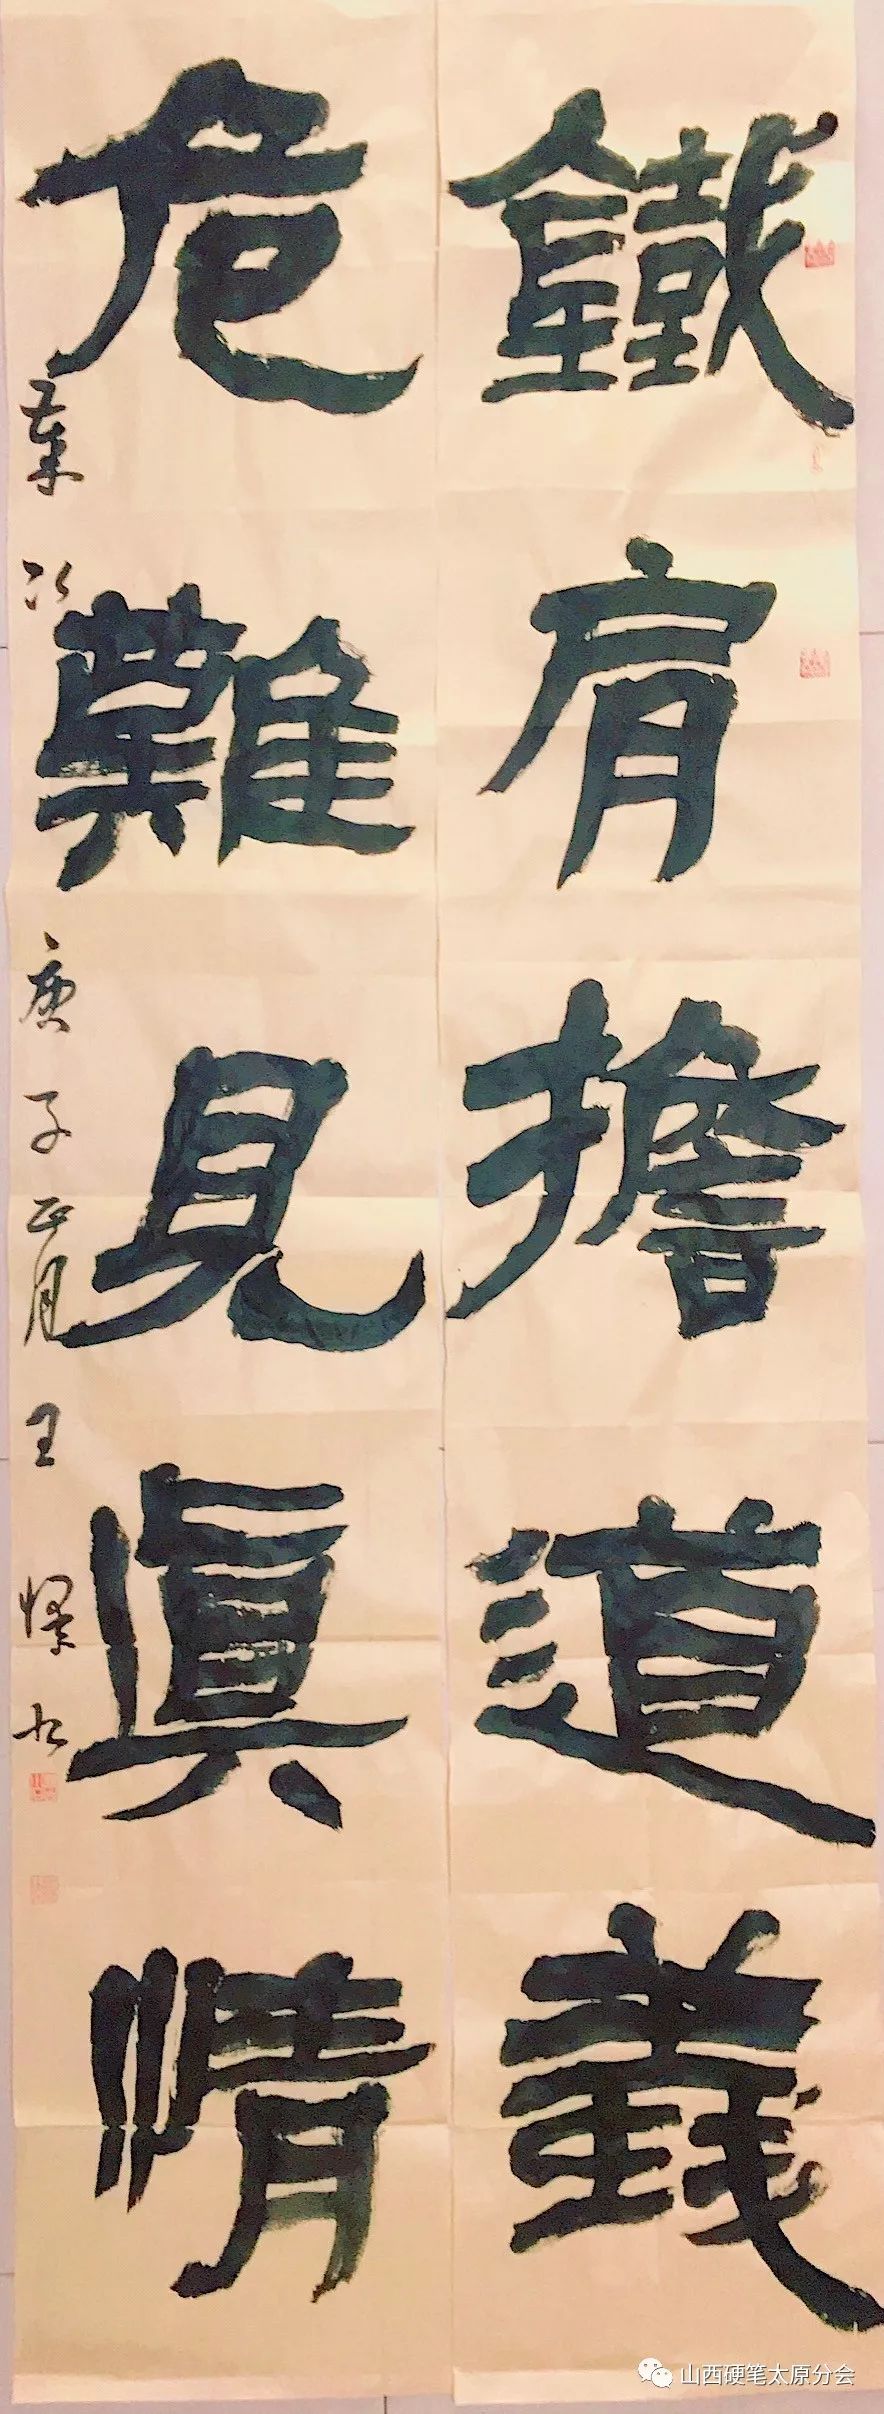 鐵肩擔道義
危難見真情
庚子正月王
山西硬笔太原分会